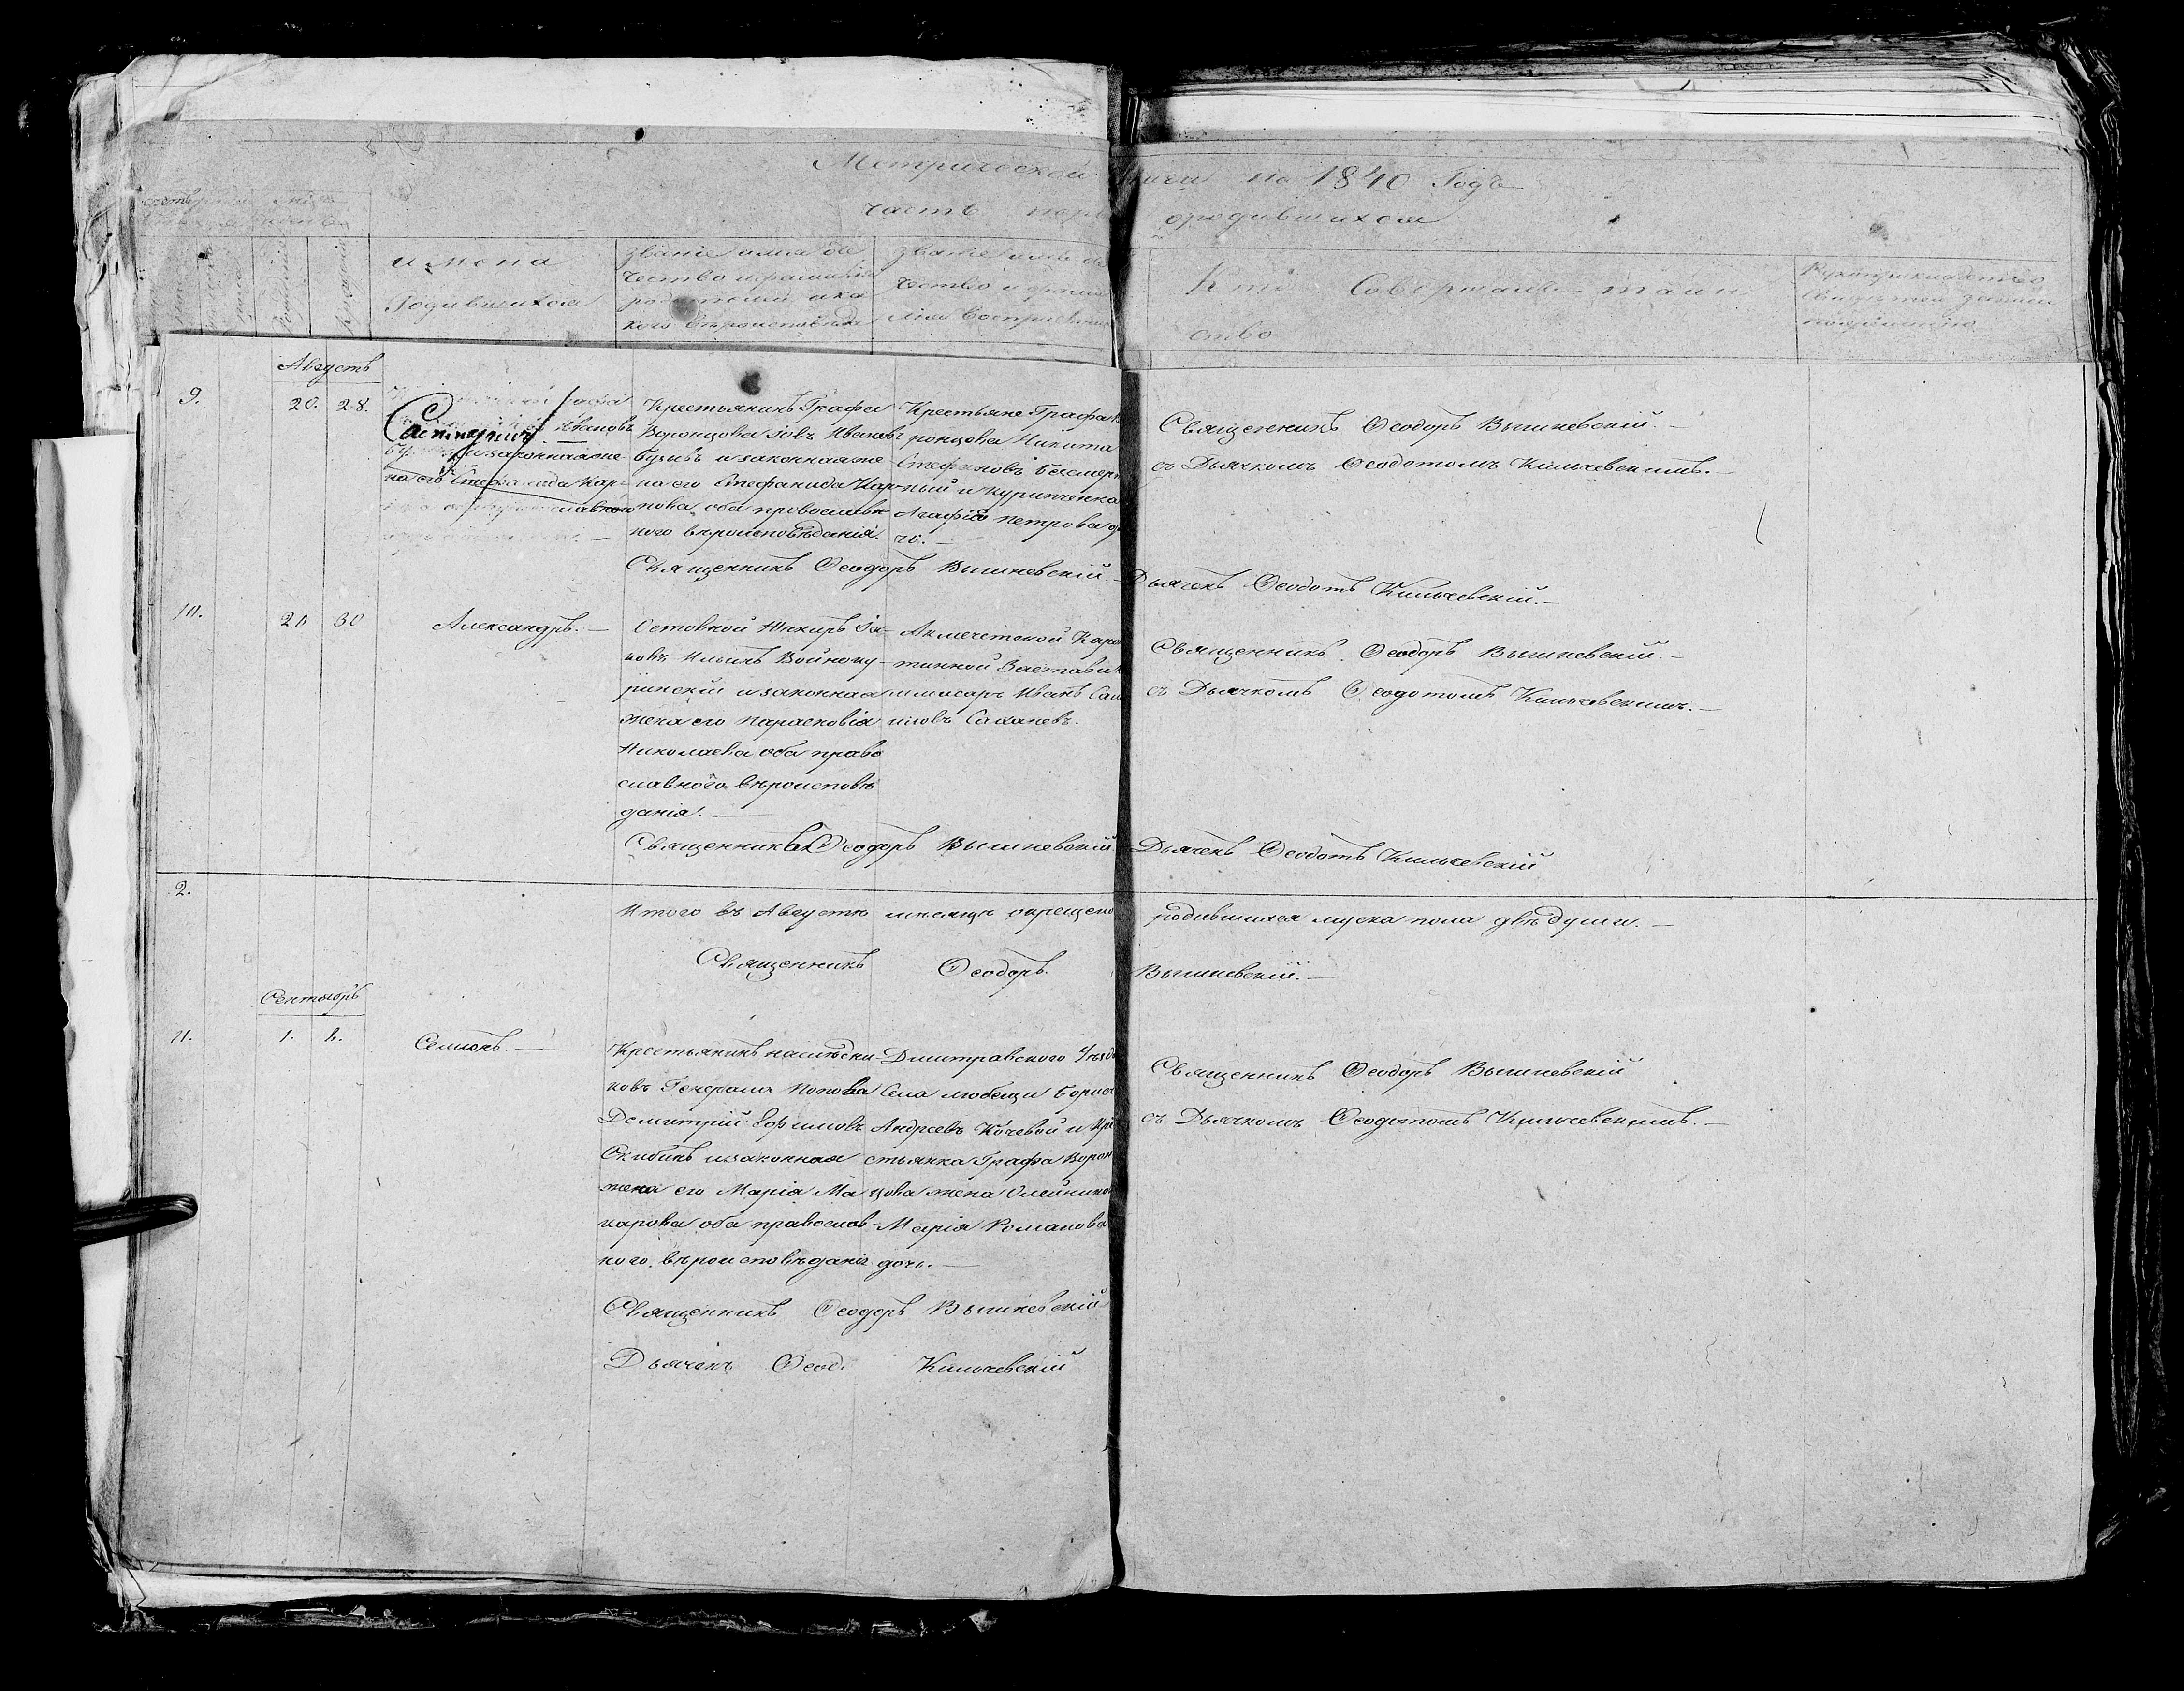 Метрической книги на 1840 Годъ
часть пер о родившихся
имена
Родившихся
Званіе имя оте
чество и фамилія
родителей и ка
кого вѣроисповѣда
Званіе имя
чество и фами
лія восприемни
Кто Совершалъ таин
ство
Рукоприкладство
Свидѣтелей записи
по желанію
Августъ
9.
20. 28.
Крестьянинъ Графа
Воронцова Іовъ Иванов
и законная же
на его Стефанида Кар
пова оба провослав
ного вѣроисповѣданія.
Крестьяне Графа В
ронцова Никита
Стефановъ Безсмерт
ный и Курипченка
Агафія Петрова до
чь.
Священникъ Ѳеодоръ Вышневскій.
съ Дьячкомъ Ѳеодотомъ Кильчевскимъ.
Священникъ Ѳеодоръ Вышневскій
Дьячекъ Ѳеодотъ Кильчевскій.
10.
21 30
Александръ.
Ильинъ Войноку
ринскій и законная
жена его Парасковія
Николаева оба право
славного вѣроисповѣ
данія.
Акмечетской Каран
тинной Заставы К
мисаръ Иванъ Сам
иловъ Сахановъ.
Священникъ Ѳеодоръ Вышневскій.
съ Дьячкомъ Ѳеодотомъ Кильчевскимъ.
Священникъ Ѳеодоръ Вышневскій
Дьячекъ Ѳеодотъ Кильчевскій
2.
Итого въ Августѣ мѣсяцѣ окрещено родившихся муска пола двѣ души.
Священникъ Ѳеодоръ Вышневскій.
Сентябрь
11.
1.
Семіонъ.
Крестьянинъ наслѣдни
ковъ Генерала Попова
Демитрій Ефимовъ
Скибинъ и законная
жена его Марія Ма
карова оба провослав
ного вѣроисповѣданія
Дмитравского Уѣзда
Села Любещи Борис
Андреевъ Кочевой и Кре
стьянка Графа Ворон
цова жена Олейнико
Марія Романова
дочь.
Священникъ Ѳеодоръ Вышневскій
съ Дьячкомъ Ѳеодотомъ Кильчевскимъ.
Священникъ Ѳеодоръ Вышневскій
Дьячекъ Ѳеод. Кильчевскій